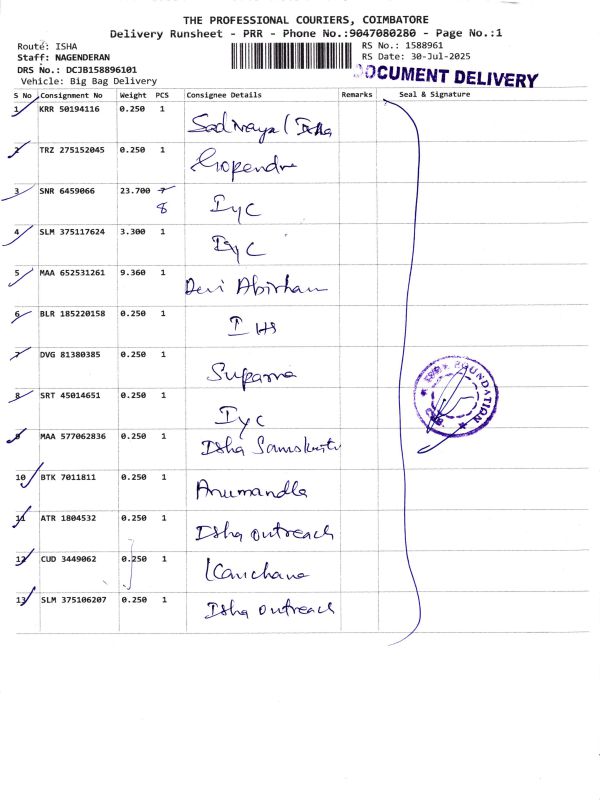 THE PROFESSIONAL COURIERS, COIMBATORE
Delivery Runsheet - PRR - Phone No.:9047080280 - Page No.:1
Route: ISHA
Staff: NAGENDERAN
DRS No.: DCJB158896101
Vehicle: Big Bag Delivery
RS No.: 1588961
RS Date: 30-Jul-2025
DOCUMENT DELIVERY
S No Consignment No Weight PCS Consignee Details Remarks Seal & Signature
1 KRR 50194116 0.250 1
Isha
2 TRZ 275152045 0.250 1
Gopendra
3 SNR 6459066 23.700 7
8 IYC
4 SLM 375117624 3.300 1
IYC
5 MAA 652531261 9.360 1
Devi Abirham
6 BLR 185220158 0.250 1
IHS
7 DVG 81380385 0.250 1
Suparna
8 SRT 45014651 0.250 1
IYC
9 MAA 577062836 0.250 1
Isha Samskriti
10 BTK 7011811 0.250 1
Anumandla
11 ATR 1804532 0.250 1
Isha outreach
12 CUD 3449062 0.250 1
Kanchana
13 SLM 375106207 0.250 1
Isha outreach
FOUNDATION